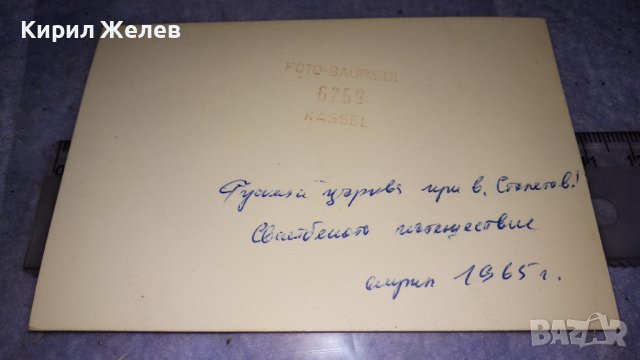 Кирил Желев
FOTO-BAURIEDL
6259
KASSEL
Руската църква при в. Столетов!
Сватбеното пътешествие
април 1965 г.
BAZAR
bg